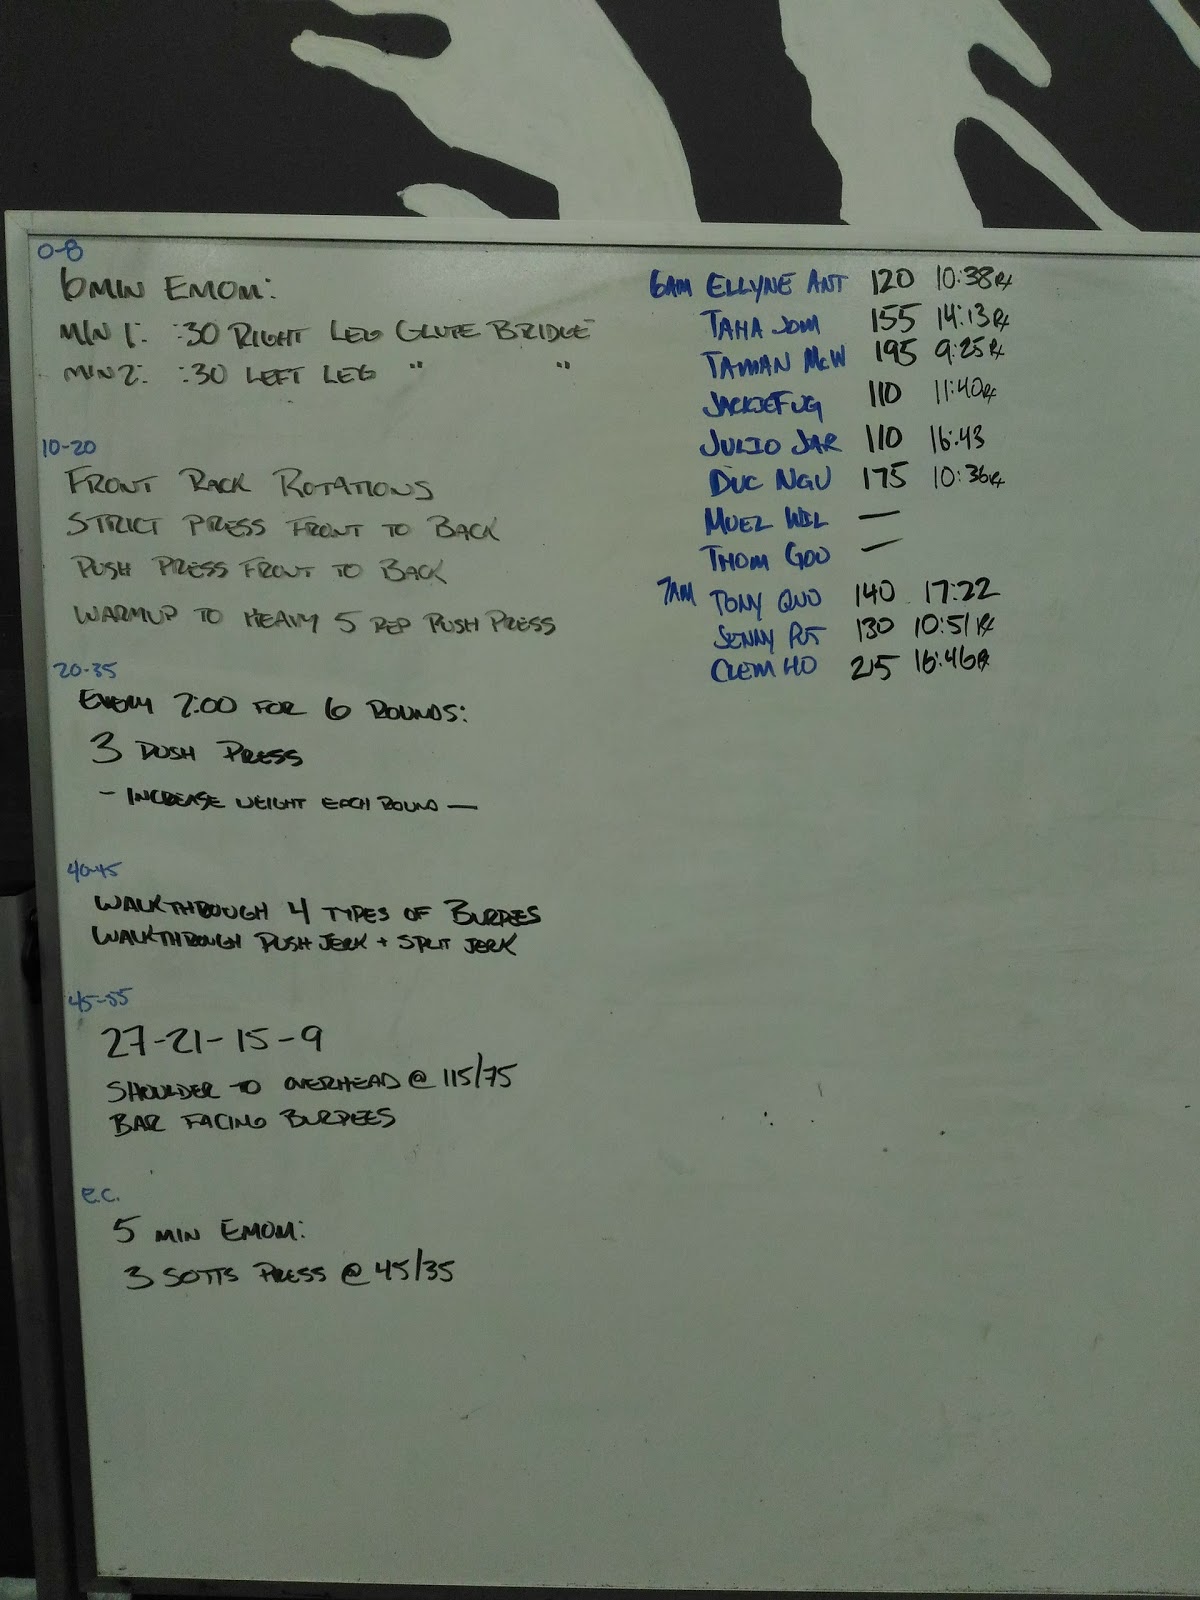 0-8
6 MIN EMOM:
MIN 1: :30 RIGHT LEG GLUTE BRIDGE
MIN 2: :30 LEFT LEG " "
10-20
FRONT RACK ROTATIONS
STRICT PRESS FRONT TO BACK
PUSH PRESS FRONT TO BACK
WARMUP TO HEAVY 5 REP PUSH PRESS
20-35
EVERY 2:00 FOR 6 ROUNDS:
3 PUSH PRESS
- INCREASE WEIGHT EACH ROUND -
40-45
WALKTHROUGH 4 TYPES OF BURPEES
WALKTHROUGH PUSH JERK + SPLIT JERK
45-55
27-21-15-9
SHOULDER TO OVERHEAD @ 115/75
BAR FACING BURPEES
e.c.
5 MIN EMOM:
3 SOTTS PRESS @ 45/35
6AM ELLYNE ANT 120 10:38 Rx
TAHA JOM 155 14:13 Rx
MCW 195 9:25 Rx
JACKIE FUG 110 11:40 Rx
JULIO JAR 110 16:43
DUC NGU 175 10:36 Rx
MUEZ WIL —
THOM GOO —
7AM TONY QUO 140 17:22
130 10:51 Rx
CLEM HO 215 16:46 Rx